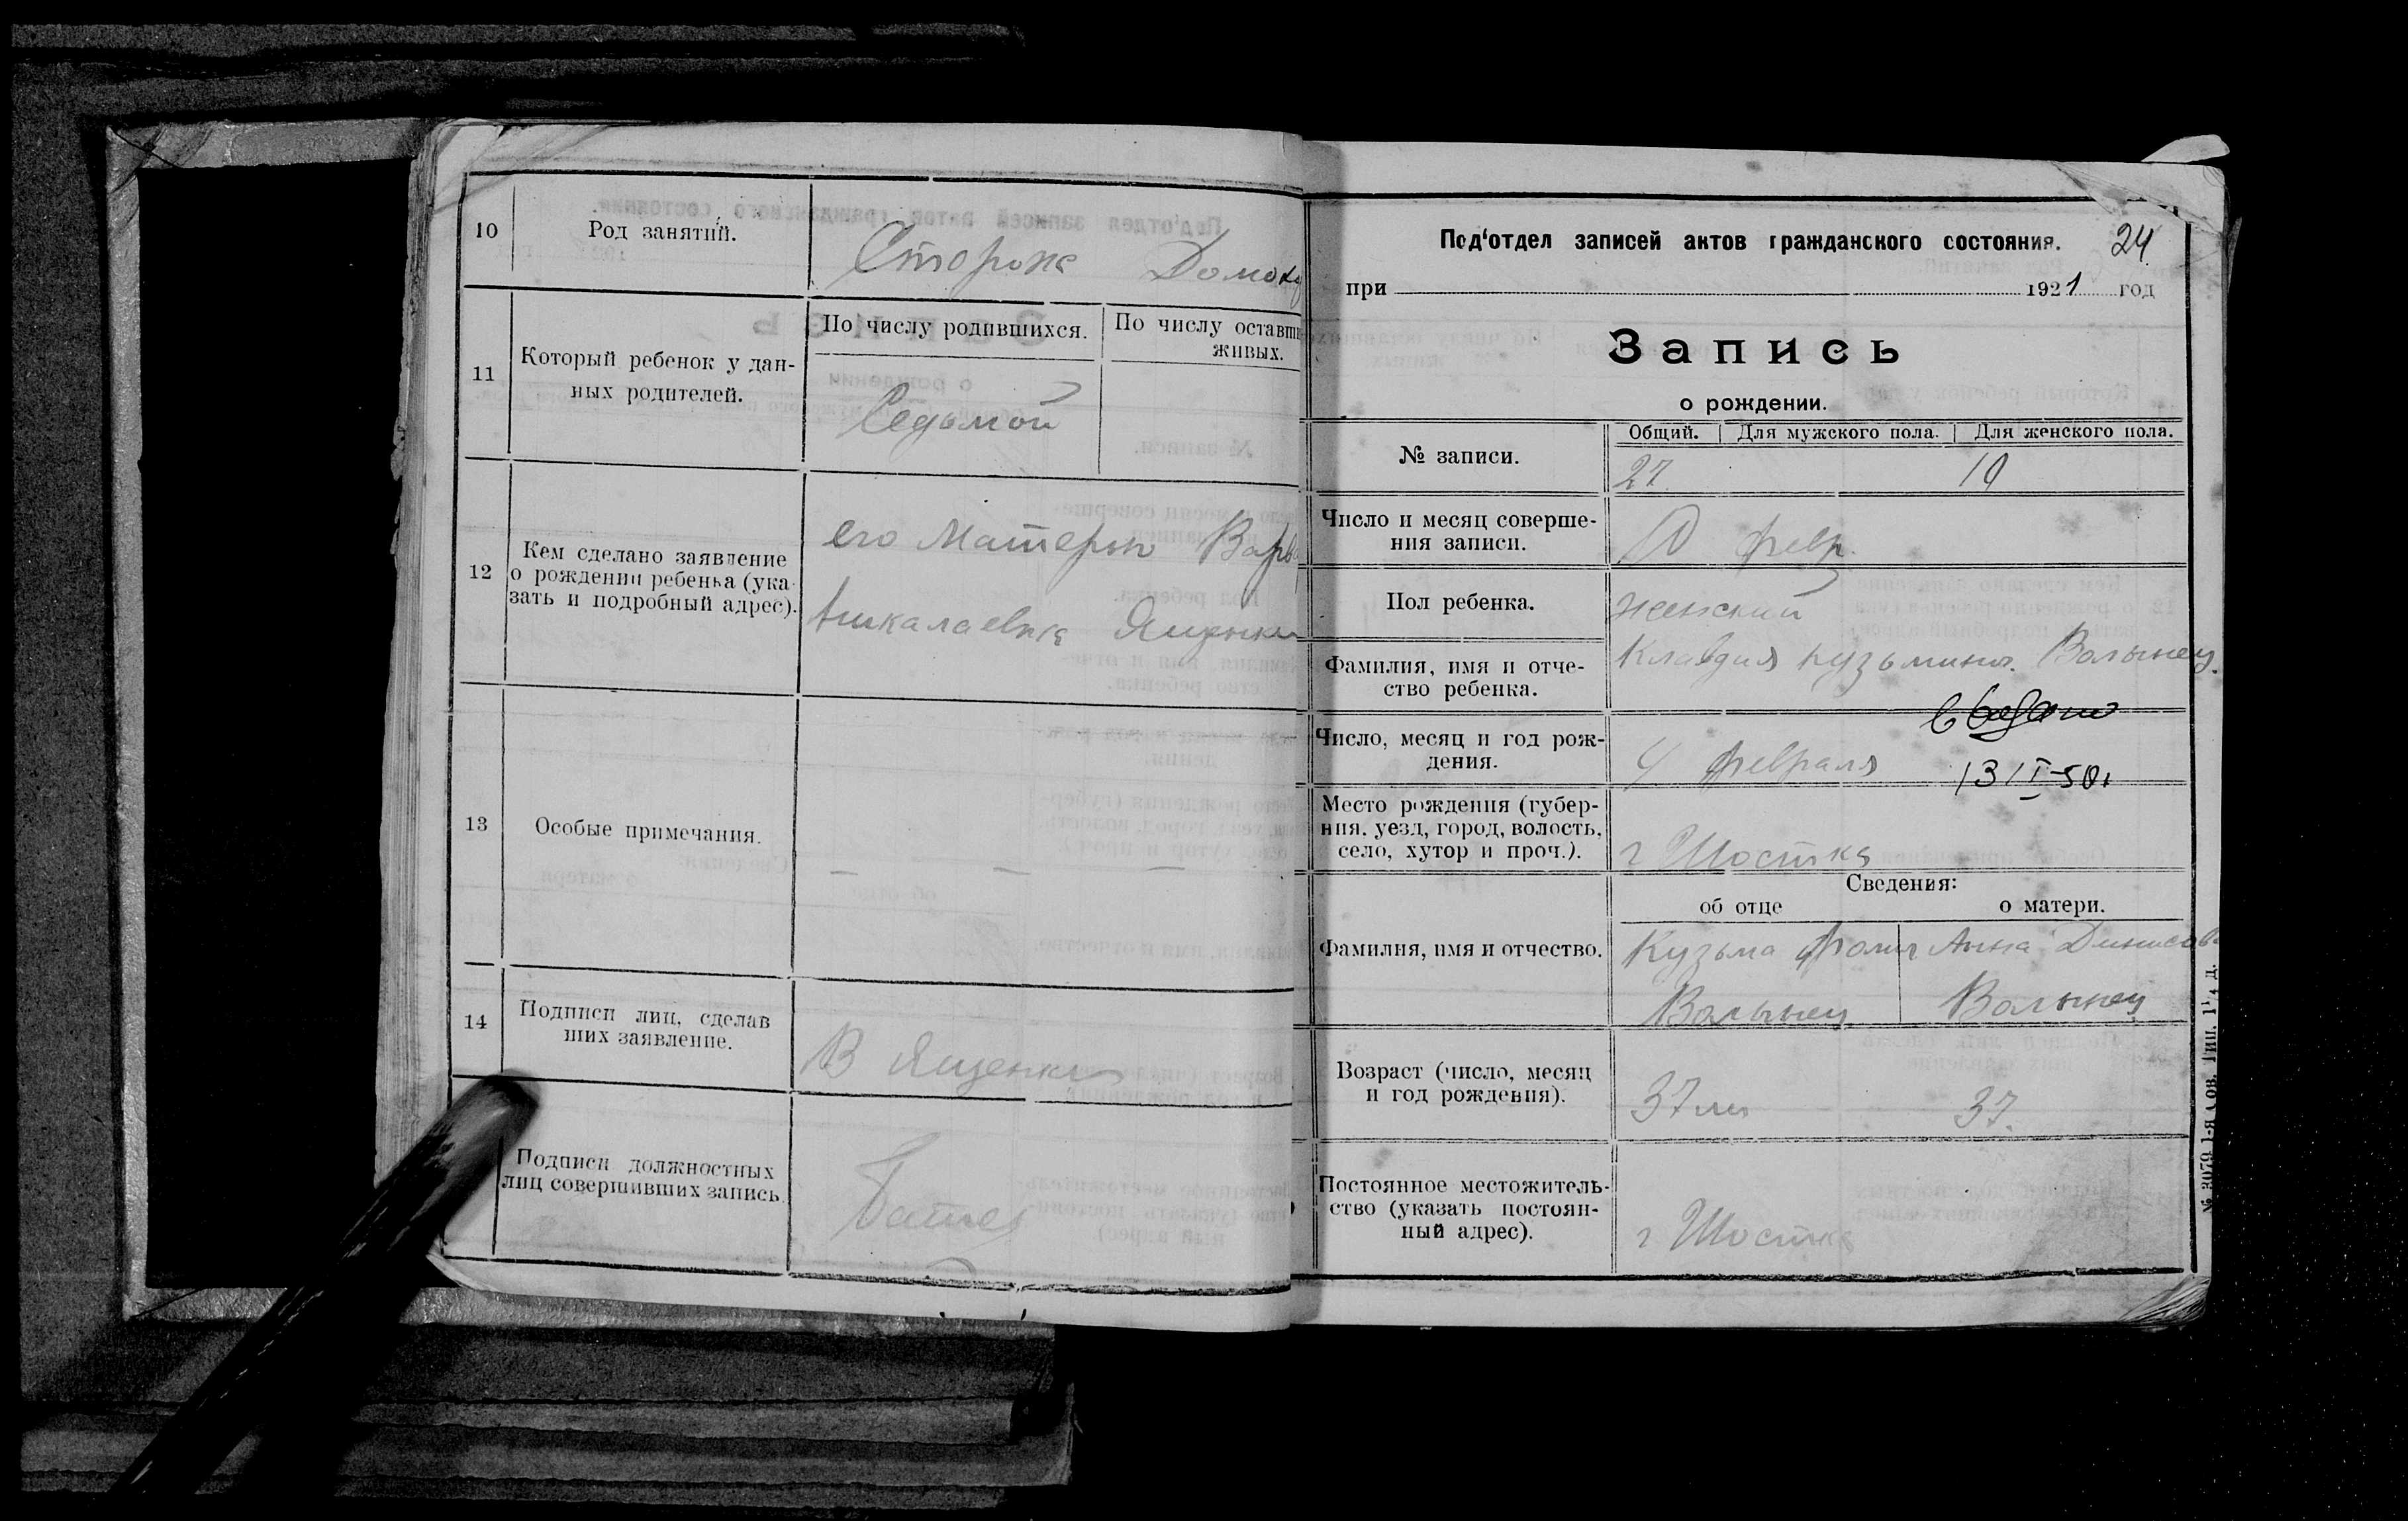 10
Род занятий.
Сторожа
11
Который ребенок у дан-
ных родителей.
По числу родившихся.
По числу оставши
живых.
Седьмой
12
Кем сделано заявление
о рождении ребенка (ука-
зать и подробный адрес).
его Матерью Варв
13
Особые примечания.
— — —
14
Подписи лиц, сделав
ших заявление.
В Ященко
Подписи должностных
лиц совершивших запись.
Под'отдел записей актов гражданского состояния. 24
при 1921 год
Запись
о рождении.
№ записи.
Общий. Для мужского пола. Для женского пола.
27 10
Число и месяц соверше-
ния записи.
10 февр.
Пол ребенка.
женский
Фамилия, имя и отче-
ство ребенка.
Клавдия Кузьмин. Волынец.
Число, месяц и год рож-
дения.
4 февраля
13/I-50г
Место рождения (губер-
ния, уезд, город, волость,
село, хутор и проч.).
г Шостка
Сведения:
об отце о матери.
Фамилия, имя и отчество.
Кузьма Фомич
Волынец
Анна Динисов
Волынец
Возраст (число, месяц
и год рождения).
37 лет 37.
Постоянное местожитель-
ство (указать постоян-
ный адрес).
г Шостка